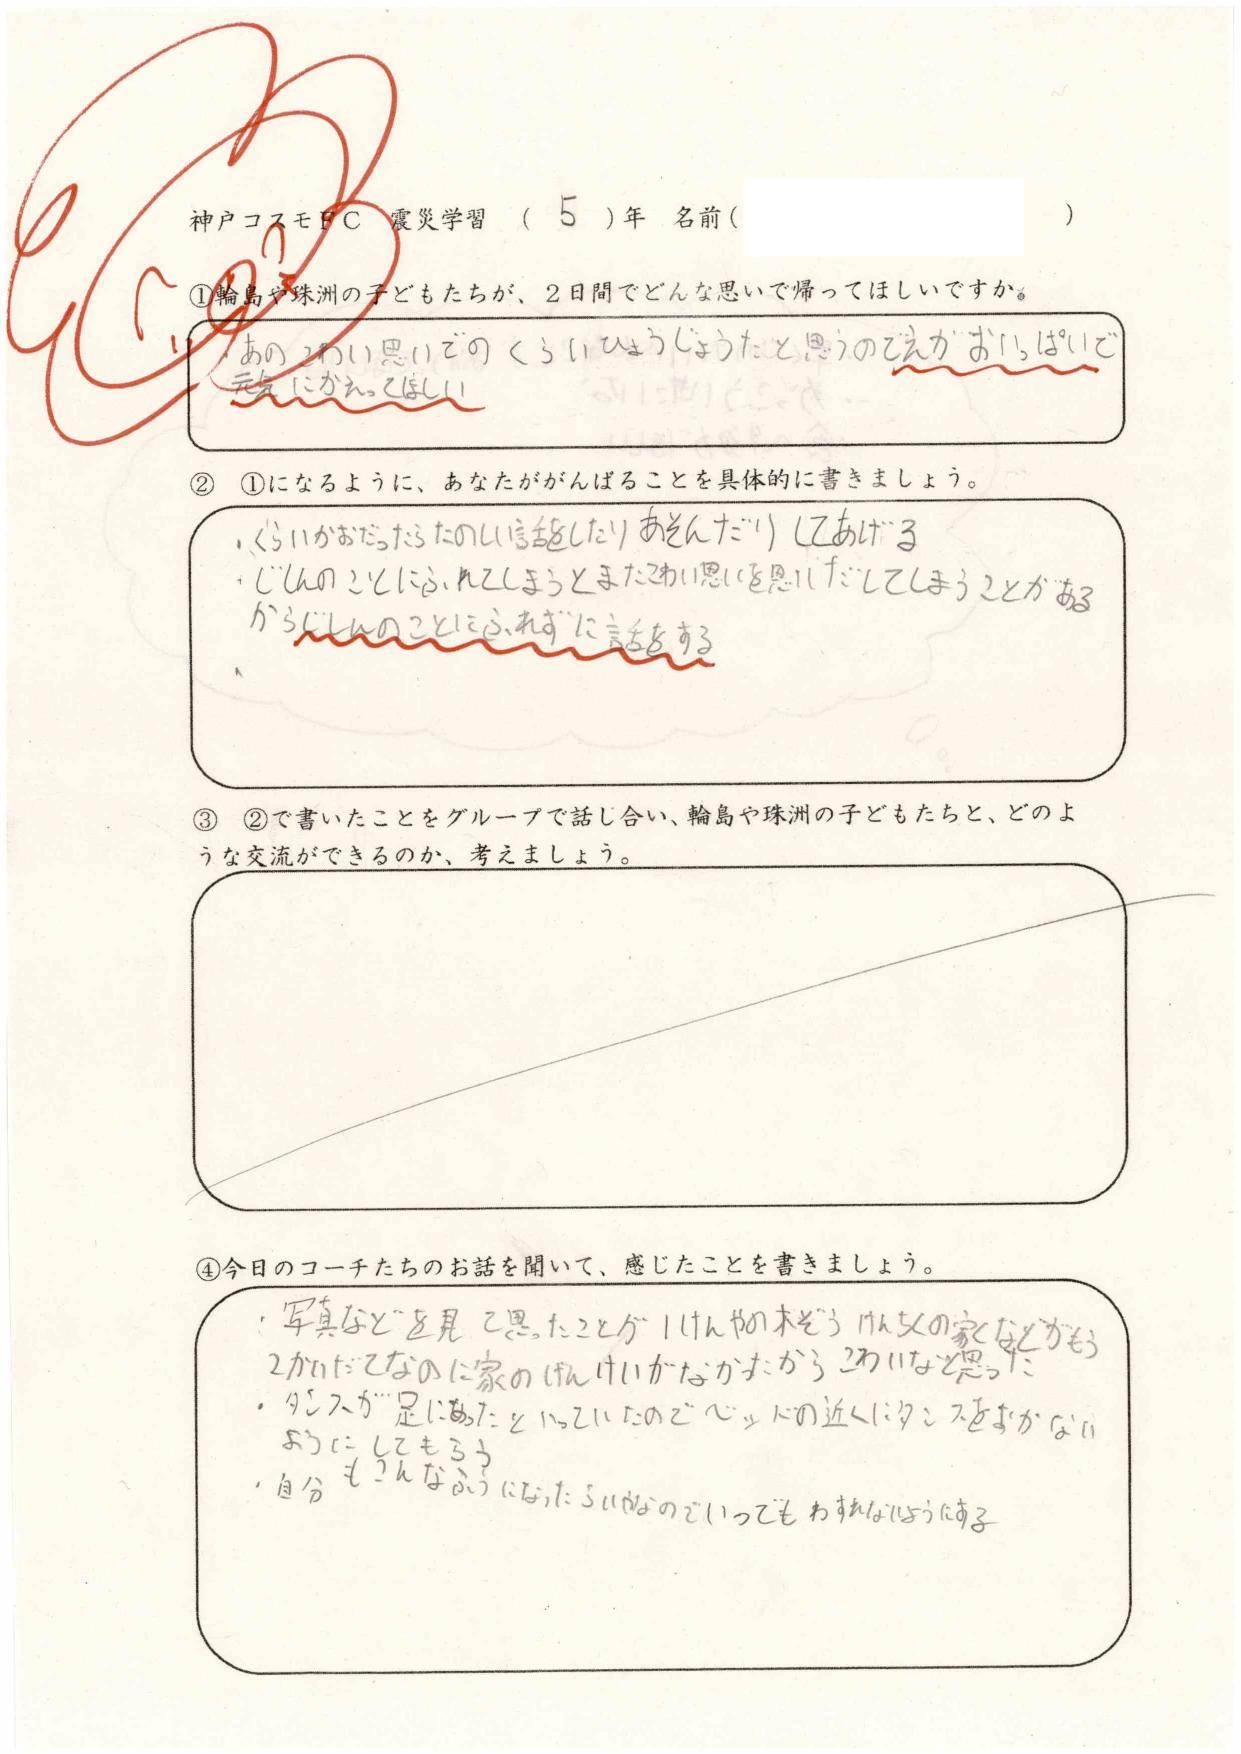 神戸コスモFC 震災学習 ( 5 )年 名前( )
①輪島や珠洲の子どもたちが、2日間でどんな思いで帰ってほしいですか。
・あのこわい思いでの くらいひょうじょうだと思うのでえがおいっぱいで
元気にかえってほしい
② ①になるように、あなたががんばることを具体的に書きましょう。
・くらいかおだったらたのしい話をしたりあそんだりしてあげる
・じしんのことにふれてしまうとまたこわい思いを思いだしてしまうことがある
からじしんのことにふれずに話をする
・
③ ②で書いたことをグループで話し合い、輪島や珠洲の子どもたちと、どのよ
うな交流ができるのか、考えましょう。
④今日のコーチたちのお話を聞いて、感じたことを書きましょう。
・写真などを見て思ったことが1けんやの木ぞうけんちくの家などがもう
2かいだてなのに家のげんけいがなかったからこわいなと思った
・タンスが足にあったといっていたのでベッドの近くにタンスをおかない
ようにしてもらう
・自分もこんなふうになったらいやなのでいつでもわすれないようにする